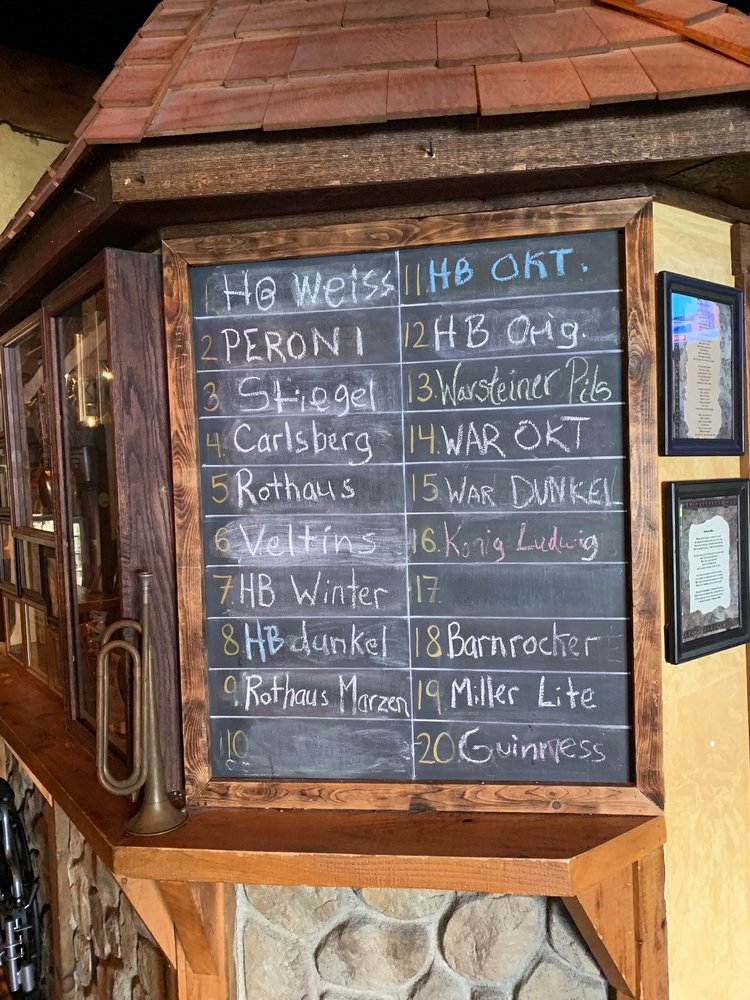 1 HB Weiss
2 PERONI
3 Stiegel
4. Carlsberg
5 Rothaus
6 Veltins
7 HB Winter
8. HB dunkel
9. Rothaus Marzen
10
11. HB OKT.
12 HB Orig.
13. Warsteiner Pils
14. WAR OKT
15 WAR DUNKEL
16. Konig Ludwig
17
18 Barnrocker
19 Miller Lite
20. Guinness